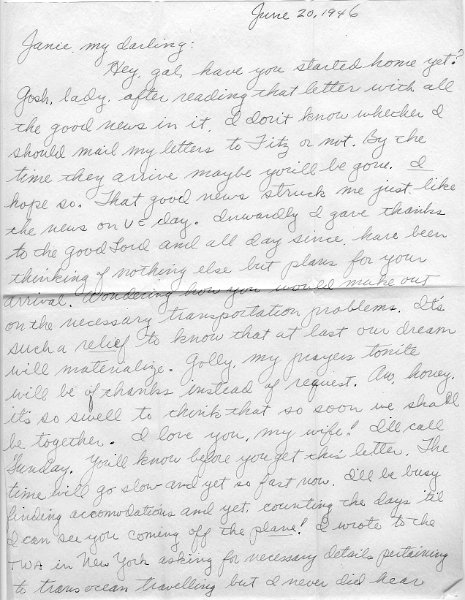 June 20, 1946
Janie my darling:
Hey, gal, have you started home yet?
Gosh, lady, after reading that letter with all
the good news in it, I don't know whether I
should mail my letters to Fitz or not. By the
time they arrive maybe you'll be gone. I
hope so. That good news struck me just like
the news on VE day. Inwardly I gave thanks
to the good Lord and all day since, have been
thinking of nothing else but plans for your
arrival. Wondering how you would make out
on the necessary transportation problems. It's
such a relief to know that at last our dream
will materialize. Golly, my prayers tonite
will be of thanks instead of request. Aw, honey,
it's so swell to think that so soon we shall
be together. I love you, my wife! I'll call
Sunday. You'll know before you get this letter. The
time will go slow and yet so fast now. I'll be busy
finding accomodations and yet, counting the days 'til
I can see you coming off the plane! I wrote to the
TWA in New York asking for necessary details pertaining
to trans ocean travelling but I never did hear